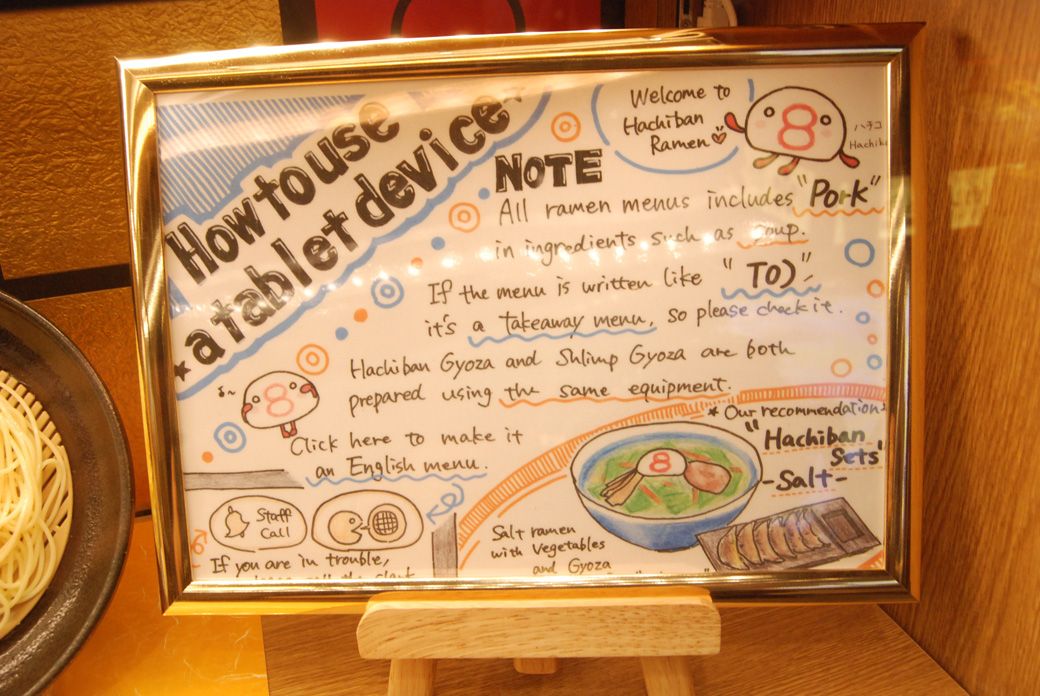 How to use
a tablet device
Welcome to
Hachiban
Ramen
8
ハチコ
NOTE
All ramen menus includes "Pork"
in ingredients such as soup.
If the menu is written like "TO)"
it's a takeaway menu, so please check it.
Hachiban Gyoza and Shlimp Gyoza are both
prepared using the same equipment.
8
Click here to make it
an English menu.
Staff
Call
If you are in trouble,
Our recommendation
"Hachiban
Sets"
-Salt-
8
Salt ramen
with Vegetables
and Gyoza